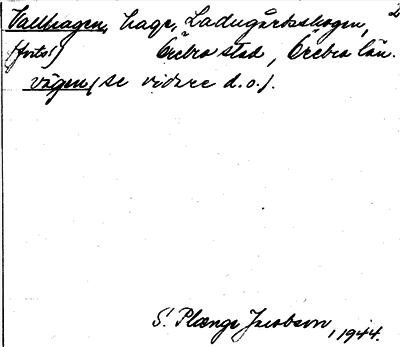 Vallhagen, hage, Ladugårdsskogen, 2
(forts!) Örebro stad, Örebro län.
vägen (se vidare d.o.).
S. Plænge Jacobson, 1944.